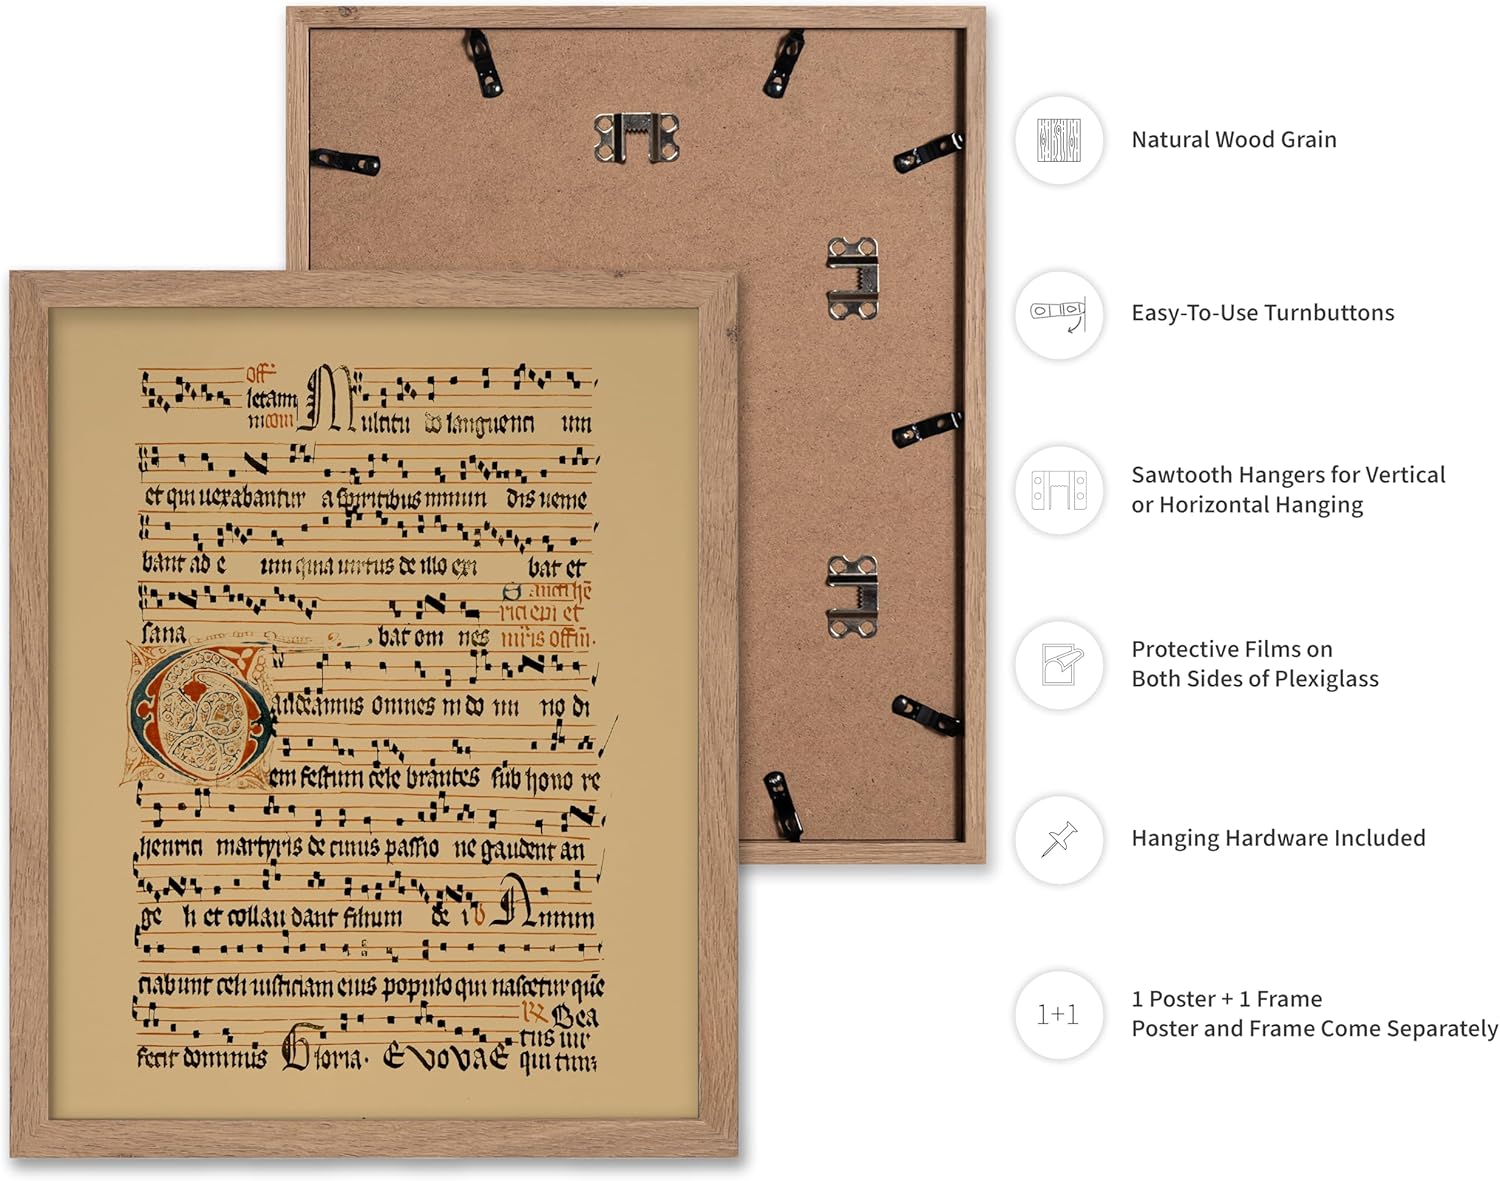 off
letann
m com Multitu do languenti um
et qui uexabantur a spiritibus mmun dis ueme
bant ad e um quia uirtus de illo exi bat et
Sancti he
rici epi et
sana bat om nes mris offm.
Gaudeamus omnes in do mi no di
em festum cele brantes sub hono re
henrici martyris de cuius passio ne gaudent an
ge li et collau dant filium de i v Annun
ciabunt celi iusticiam eius populo qui nascetur que
Bea
tus uir
fecit dominus Gloria. EVOVAE qui tim
Natural Wood Grain
Easy-To-Use Turnbuttons
Sawtooth Hangers for Vertical
or Horizontal Hanging
Protective Films on
Both Sides of Plexiglass
Hanging Hardware Included
1+1
1 Poster + 1 Frame
Poster and Frame Come Separately